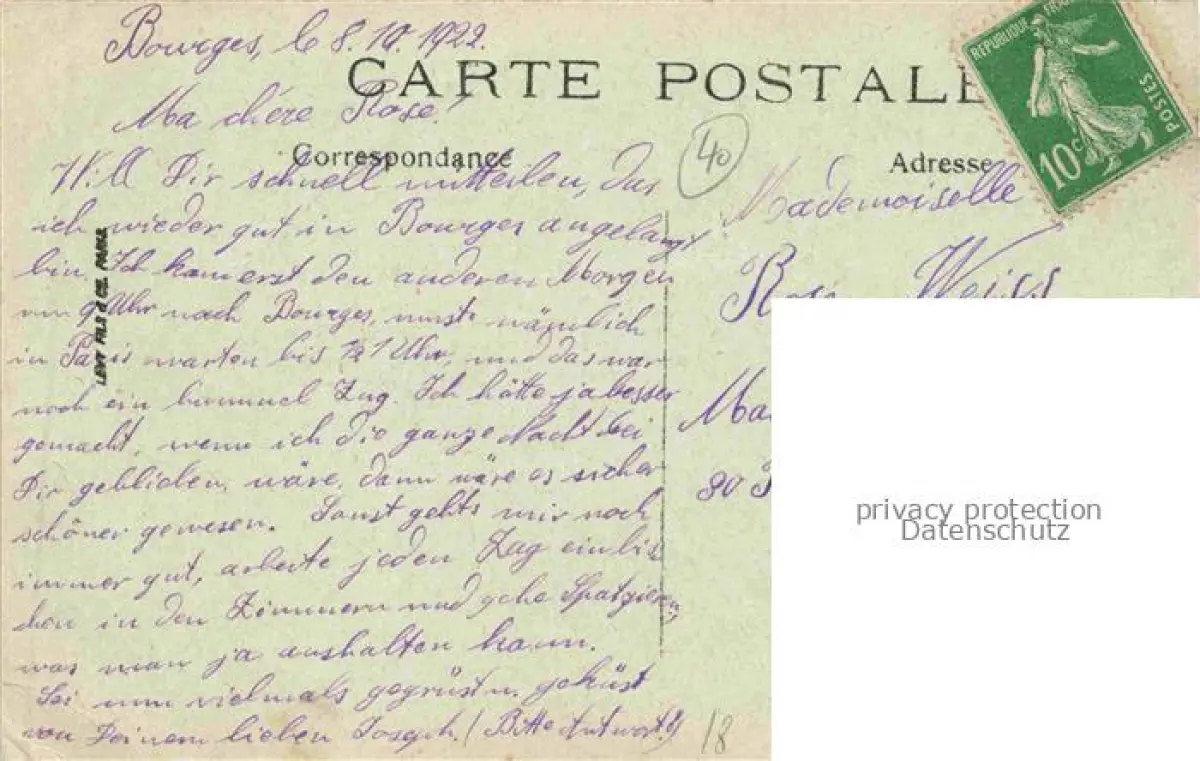 Bourges, le 8.10.1922.
CARTE POSTALE
REPUBLIQUE FRANCAISE
POSTES
10c
Ma chére Rose!
40
Correspondance
Adresse
Will Dir schnell mitteilen, das
ich wieder gut in Bourges angelangt
bin. Ich kam erst den anderen Morgen
um 9 Uhr nach Bourges, muste nämlich
in Paris warten bis 1/2 1 Uhr, und das war
noch ein bummel Zug. Ich hätte ja besser
gemacht, wenn ich die ganze Nacht bei
Dir geblieben, wäre, dann wäre es sicher
schöner gewesen. Sonst gehts mir noch
immer gut, arbeite jeden Tag ein bis
chen in den Zimmern und gehe Spatzieren,
was man ja aushalten kann.
Sei nun vielmals gegrüst u. geküst
von Deinem lieben Joseph. (Bitte Antwort!)
18
LEVY FILS & CIE. PARIS
Mademoiselle
Rose Weiss
Ma
80
privacy protection
Datenschutz